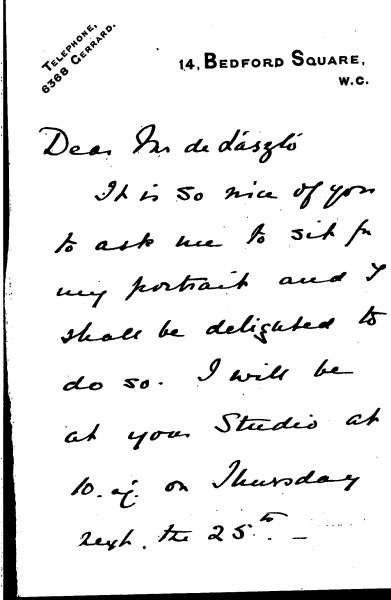 TELEPHONE,
6368 GERRARD.
14, BEDFORD SQUARE,
W.C.
Dear Mr de László
It is so nice of you
to ask me to sit for
my portrait and I
shall be delighted to
do so. I will be
at your Studio at
10. on Thursday
next. the 25th. —